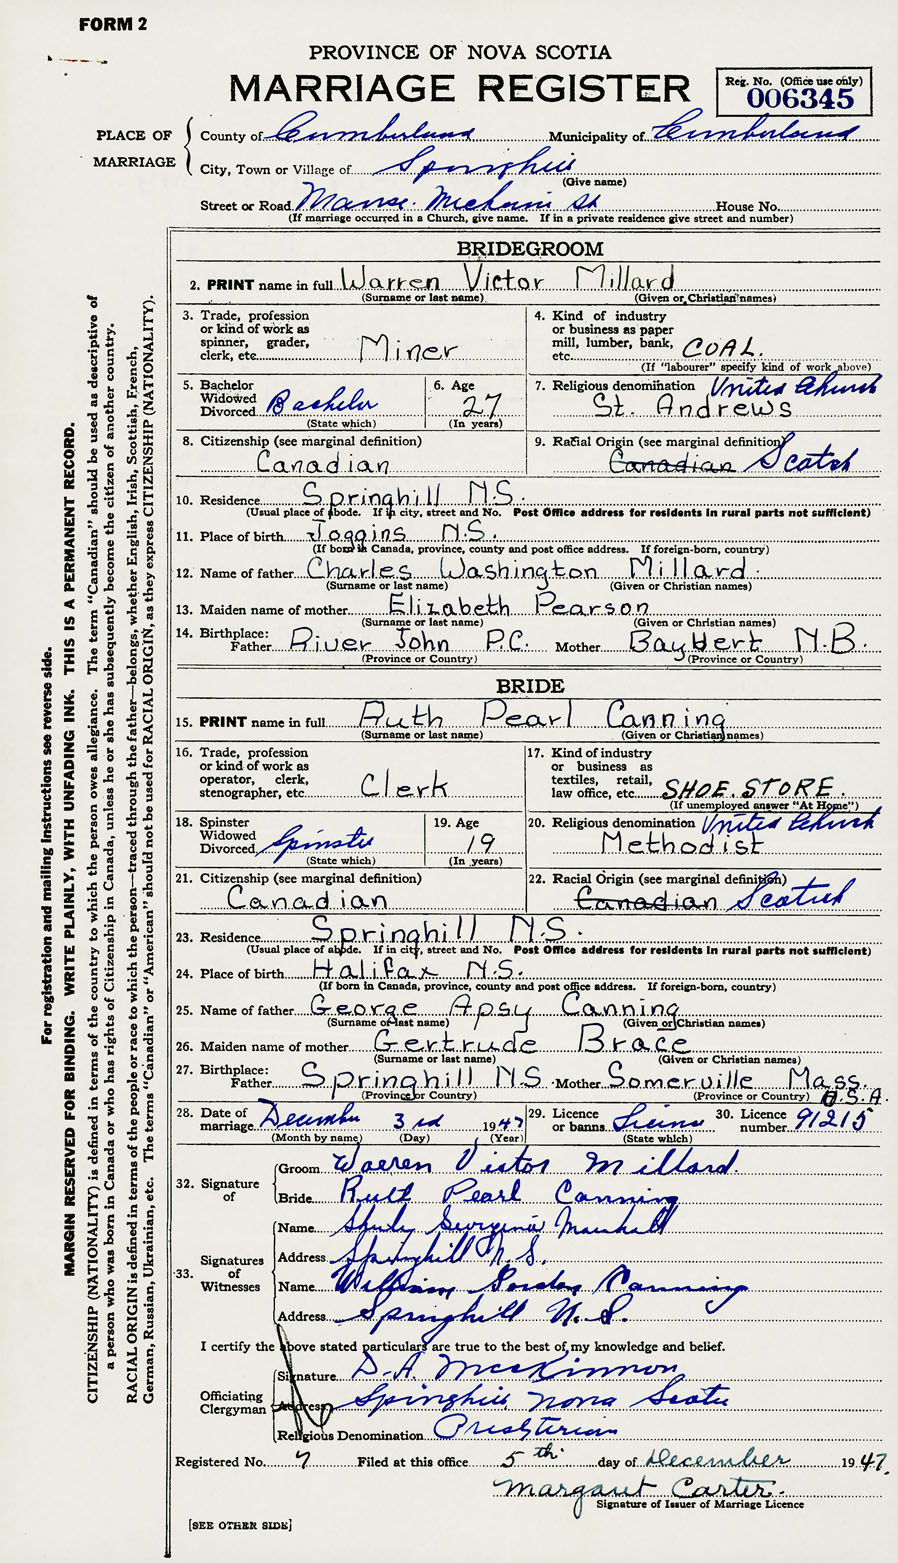 FORM 2
PROVINCE OF NOVA SCOTIA
MARRIAGE REGISTER
Reg. No. (Office use only)
006345
PLACE OF MARRIAGE
County of Cumberland Municipality of Cumberland
City, Town or Village of Springhill
(Give name)
Street or Road Manse. Mechanic St House No.
(If marriage occurred in a Church, give name. If in a private residence give street and number)
BRIDEGROOM
2. PRINT name in full Warren Victor Millard
(Surname or last name) (Given or Christian names)
3. Trade, profession or kind of work as spinner, grader, clerk, etc. Miner
4. Kind of industry or business as paper mill, lumber, bank, etc. COAL.
(If "labourer" specify kind of work above)
5. Bachelor Widowed Divorced Bachelor
(State which)
6. Age 27
(In years)
7. Religious denomination United Church
St. Andrews
8. Citizenship (see marginal definition)
Canadian
9. Racial Origin (see marginal definition)
Canadian Scotch
10. Residence Springhill N.S.
(Usual place of abode. If in city, street and No. Post Office address for residents in rural parts not sufficient)
11. Place of birth Joggins N.S.
(If born in Canada, province, county and post office address. If foreign-born, country)
12. Name of father Charles Washington Millard.
(Surname or last name) (Given or Christian names)
13. Maiden name of mother Elizabeth Pearson
(Surname or last name) (Given or Christian names)
14. Birthplace: Father River John P.C. Mother Bay Vert N.B.
(Province or Country) (Province or Country)
BRIDE
15. PRINT name in full Ruth Pearl Canning
(Surname or last name) (Given or Christian names)
16. Trade, profession or kind of work as operator, clerk, stenographer, etc. Clerk
17. Kind of industry or business as textiles, retail, law office, etc. SHOE STORE.
(If unemployed answer "At Home")
18. Spinster Widowed Divorced Spinster
(State which)
19. Age 19
(In years)
20. Religious denomination United Church
Methodist
21. Citizenship (see marginal definition)
Canadian
22. Racial Origin (see marginal definition)
Canadian Scotch
23. Residence Springhill N.S.
(Usual place of abode. If in city, street and No. Post Office address for residents in rural parts not sufficient)
24. Place of birth Halifax N.S.
(If born in Canada, province, county and post office address. If foreign-born, country)
25. Name of father George Apsy Canning
(Surname or last name) (Given or Christian names)
26. Maiden name of mother Gertrude Brace
(Surname or last name) (Given or Christian names)
27. Birthplace: Father Springhill N.S. Mother Somerville Mass. U.S.A.
(Province or Country) (Province or Country)
28. Date of marriage December 3rd 1947
(Month by name) (Day) (Year)
29. Licence or banns License
(State which)
30. Licence number 91215
32. Signature of
Groom Warren Victor Millard.
Bride Ruth Pearl Canning
33. Signatures of Witnesses
Name Georgina
Address Springhill N.S.
Name William Gordon Canning
Address Springhill N.S.
I certify the above stated particulars are true to the best of my knowledge and belief.
Officiating Clergyman
Signature D. A. MacKinnon
Address Springhill Nova Scotia
Religious Denomination Presbyterian
Registered No. 7 Filed at this office 5th day of December 1947.
Margaret Carter.
Signature of Issuer of Marriage Licence
[SEE OTHER SIDE]
For registration and mailing instructions see reverse side.
MARGIN RESERVED FOR BINDING. WRITE PLAINLY, WITH UNFADING INK. THIS IS A PERMANENT RECORD.
CITIZENSHIP (NATIONALITY) is defined in terms of the country to which the person owes allegiance. The term "Canadian" should be used as descriptive of
a person who was born in Canada or who has rights of Citizenship in Canada, unless he or she has subsequently become the citizen of another country.
RACIAL ORIGIN is defined in terms of the people or race to which the person—traced through the father—belongs, whether English, Irish, Scottish, French,
German, Russian, Ukrainian, etc. The terms "Canadian" or "American" should not be used for RACIAL ORIGIN, as they express CITIZENSHIP (NATIONALITY).